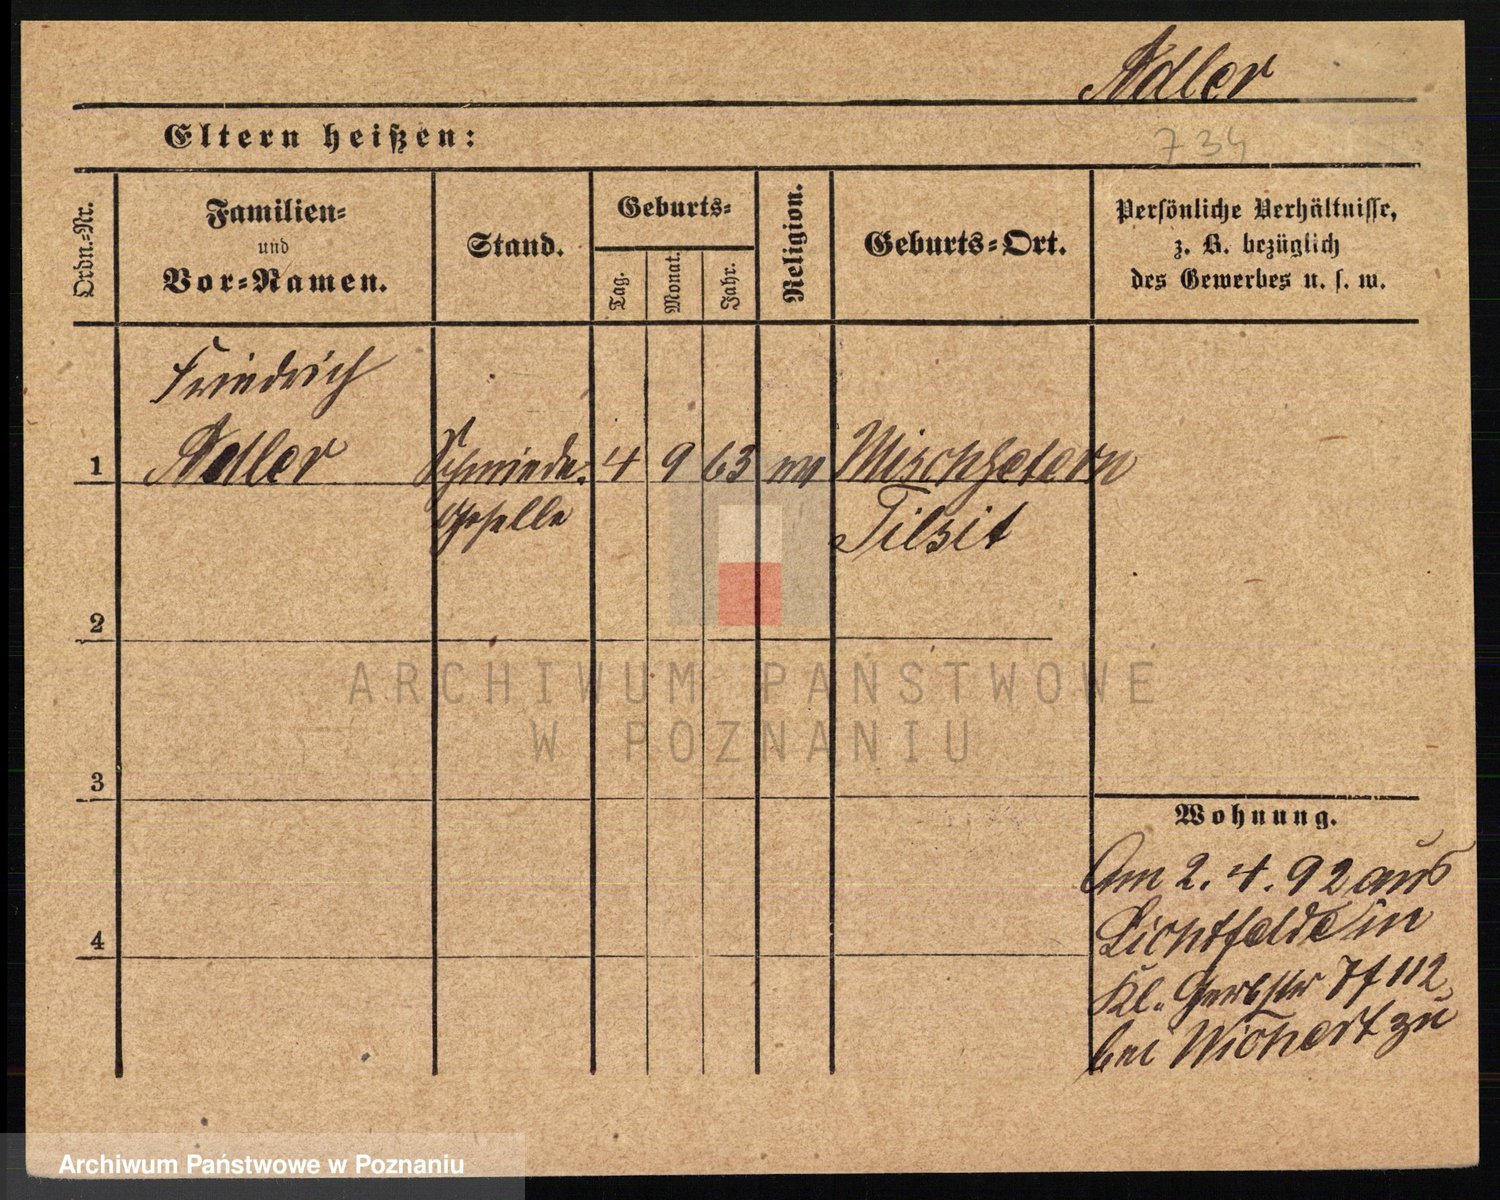 Adler
Eltern heißen:
734
Ordn.-Nr.
Familien-
und
Vor-Namen.
Stand.
Geburts-
Tag.
Monat.
Jahr.
Religion.
Geburts-Ort.
Persönliche Verhältnisse,
z. B. bezüglich
des Gewerbes u. s. w.
Friedrich
1 Adler Schmiede- 4 9 63 ev
Geselle Tilsit
2
ARCHIWUM PAŃSTWOWE
W POZNANIU
3
Wohnung.
Am 2. 4. 92 aus
Lichtfelde in
4
Kl. Gerbstr 112
bei Wichert zu
Archiwum Państwowe w Poznaniu